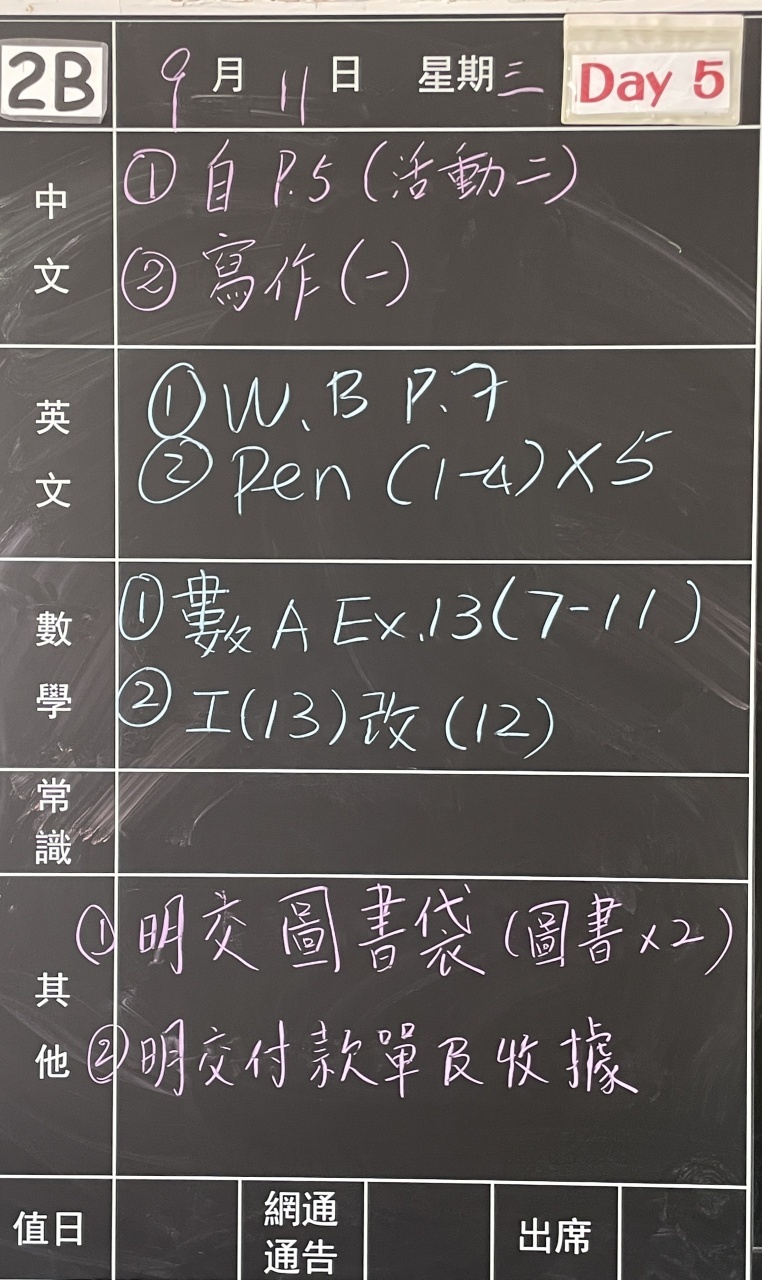 2B 9月11日 星期三 Day 5
中文
① 自 P.5 (活動二)
② 寫作 (一)
英文
① W.B P.7
② Pen (1-4) × 5
數學
① 數A Ex.13 (7-11)
② I(13) 改 (12)
常識
其他
① 明交圖書袋 (圖書×2)
② 明交付款單及收據
值日
網通
通告
出席